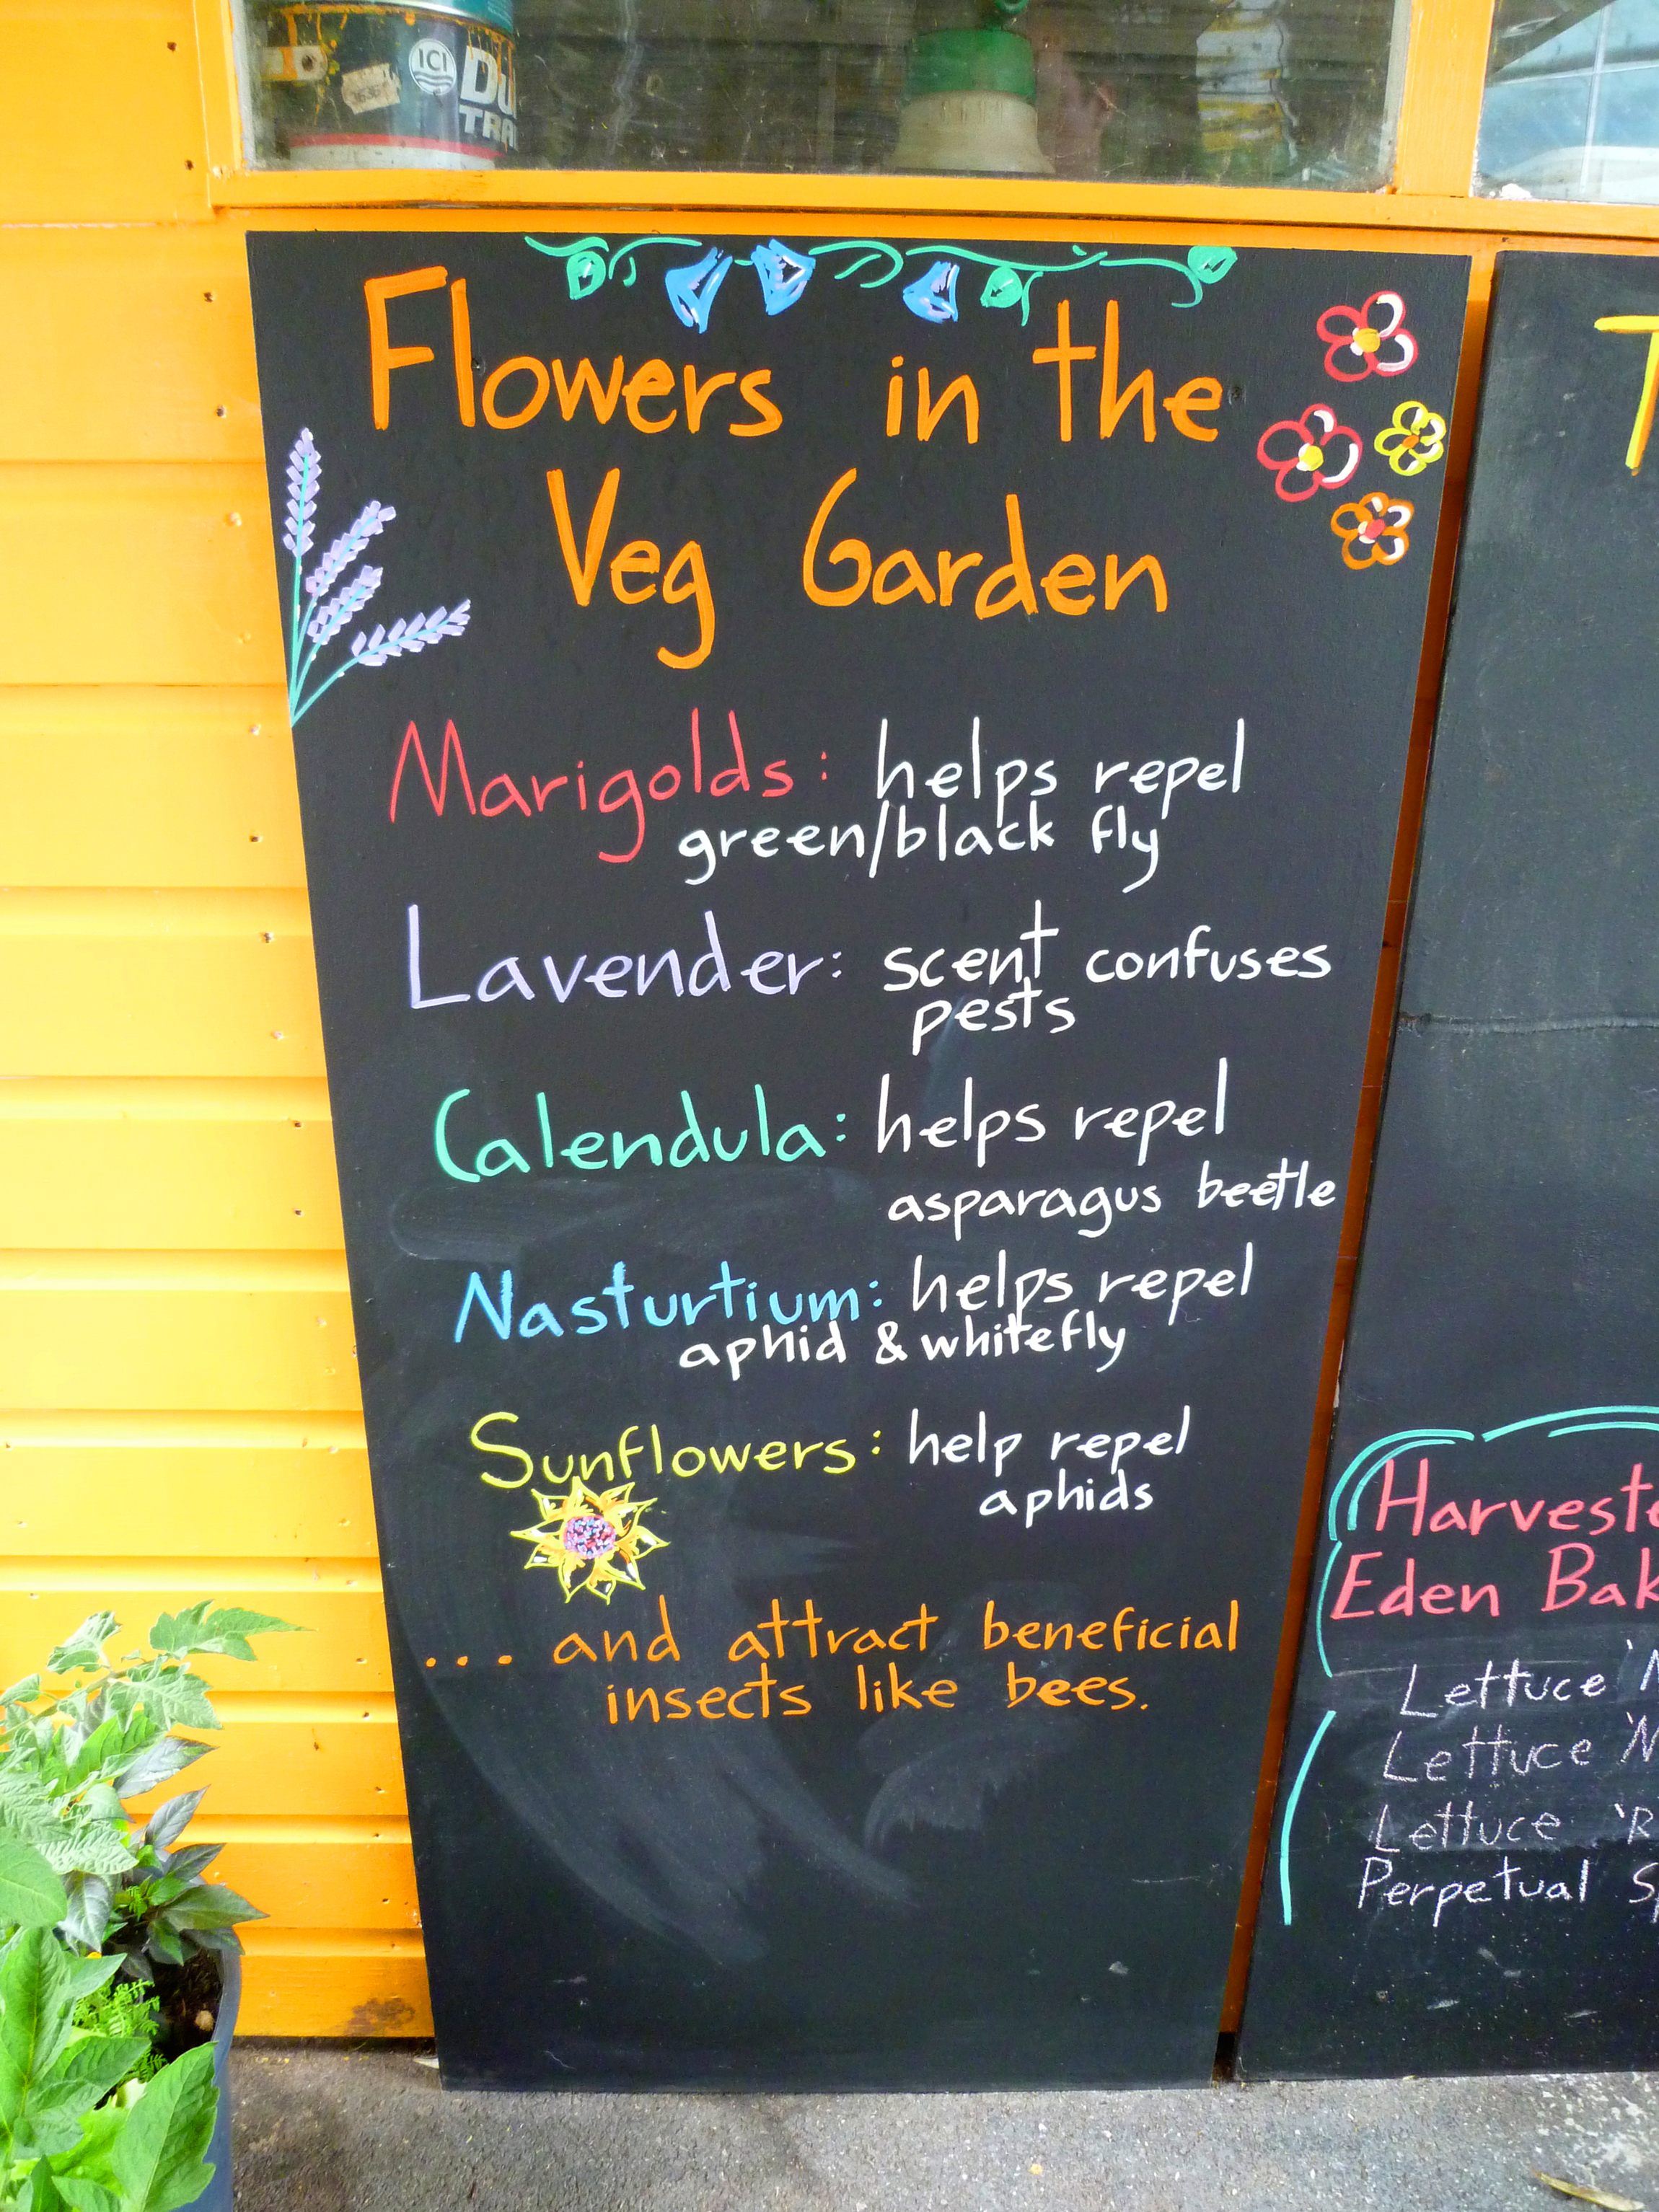 ICI
Flowers in the
Veg Garden
Marigolds: helps repel
green/black fly
Lavender: scent confuses
pests
Calendula: helps repel
asparagus beetle
Nasturtium: helps repel
aphid & whitefly
Sunflowers: help repel
aphids
... and attract beneficial
insects like bees.
Eden
Lettuce
Lettuce
Lettuce
Perpetual